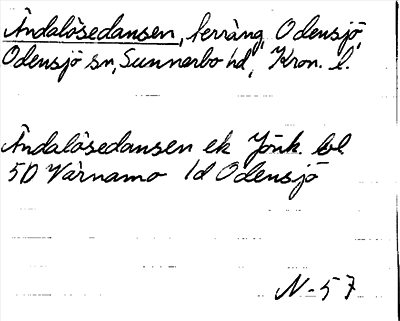 Ändalösedansen, terräng, Odensjö,
Odensjö sn, Sunnerbo hd, Kron. l.
Ändalösedansen ek Jönk. bl
5D Värnamo 1d Odensjö
N-57